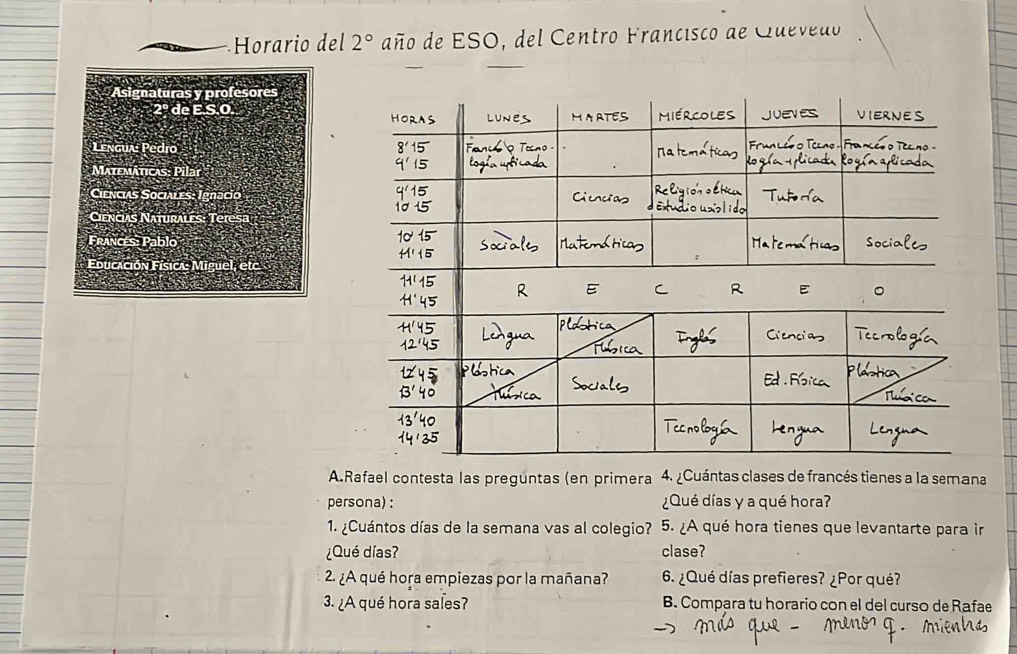 Horario del 2° año de ESO, del Centro Francisco de Quevedo
Asignaturas y profesores
2° de E.S.O.
LENGUA: Pedro
MATEMÁTICAS: Pilar
CIENCIAS SOCIALES: Ignacio
CIENCIAS NATURALES: Teresa
FRANCÉS: Pablo
EDUCACIÓN FÍSICA: Miguel, etc.
HORAS LUNES MARTES MIÉRCOLES JUEVES VIERNES
8'15 Francés o Tecno- Francés o Tecno- Francés o Tecno-
9'15 logía aplicada Matemáticas logía aplicada logía aplicada
9'15 Ciencias Religión o ética Tutoría
10'15 o Estudio asistido
10'15 Sociales Matemáticas Matemáticas Sociales
11'15
11'15 R E C R E O
11'45
11'45 Lengua Plástica Inglés Ciencias Tecnología
12'45 Música
12'45 Plástica Sociales Ed. Física Plástica
13'40 Música Música
13'40 Tecnología Lengua Lengua
14'35
A.Rafael contesta las preguntas (en primera
persona) :
1. ¿Cuántos días de la semana vas al colegio?
¿Qué días?
2. ¿A qué hora empiezas por la mañana?
3. ¿A qué hora sales?
4. ¿Cuántas clases de francés tienes a la semana
¿Qué días y a qué hora?
5. ¿A qué hora tienes que levantarte para ir
clase?
6. ¿Qué días prefieres? ¿Por qué?
B. Compara tu horario con el del curso de Rafae
-> más que - menor q. mientras